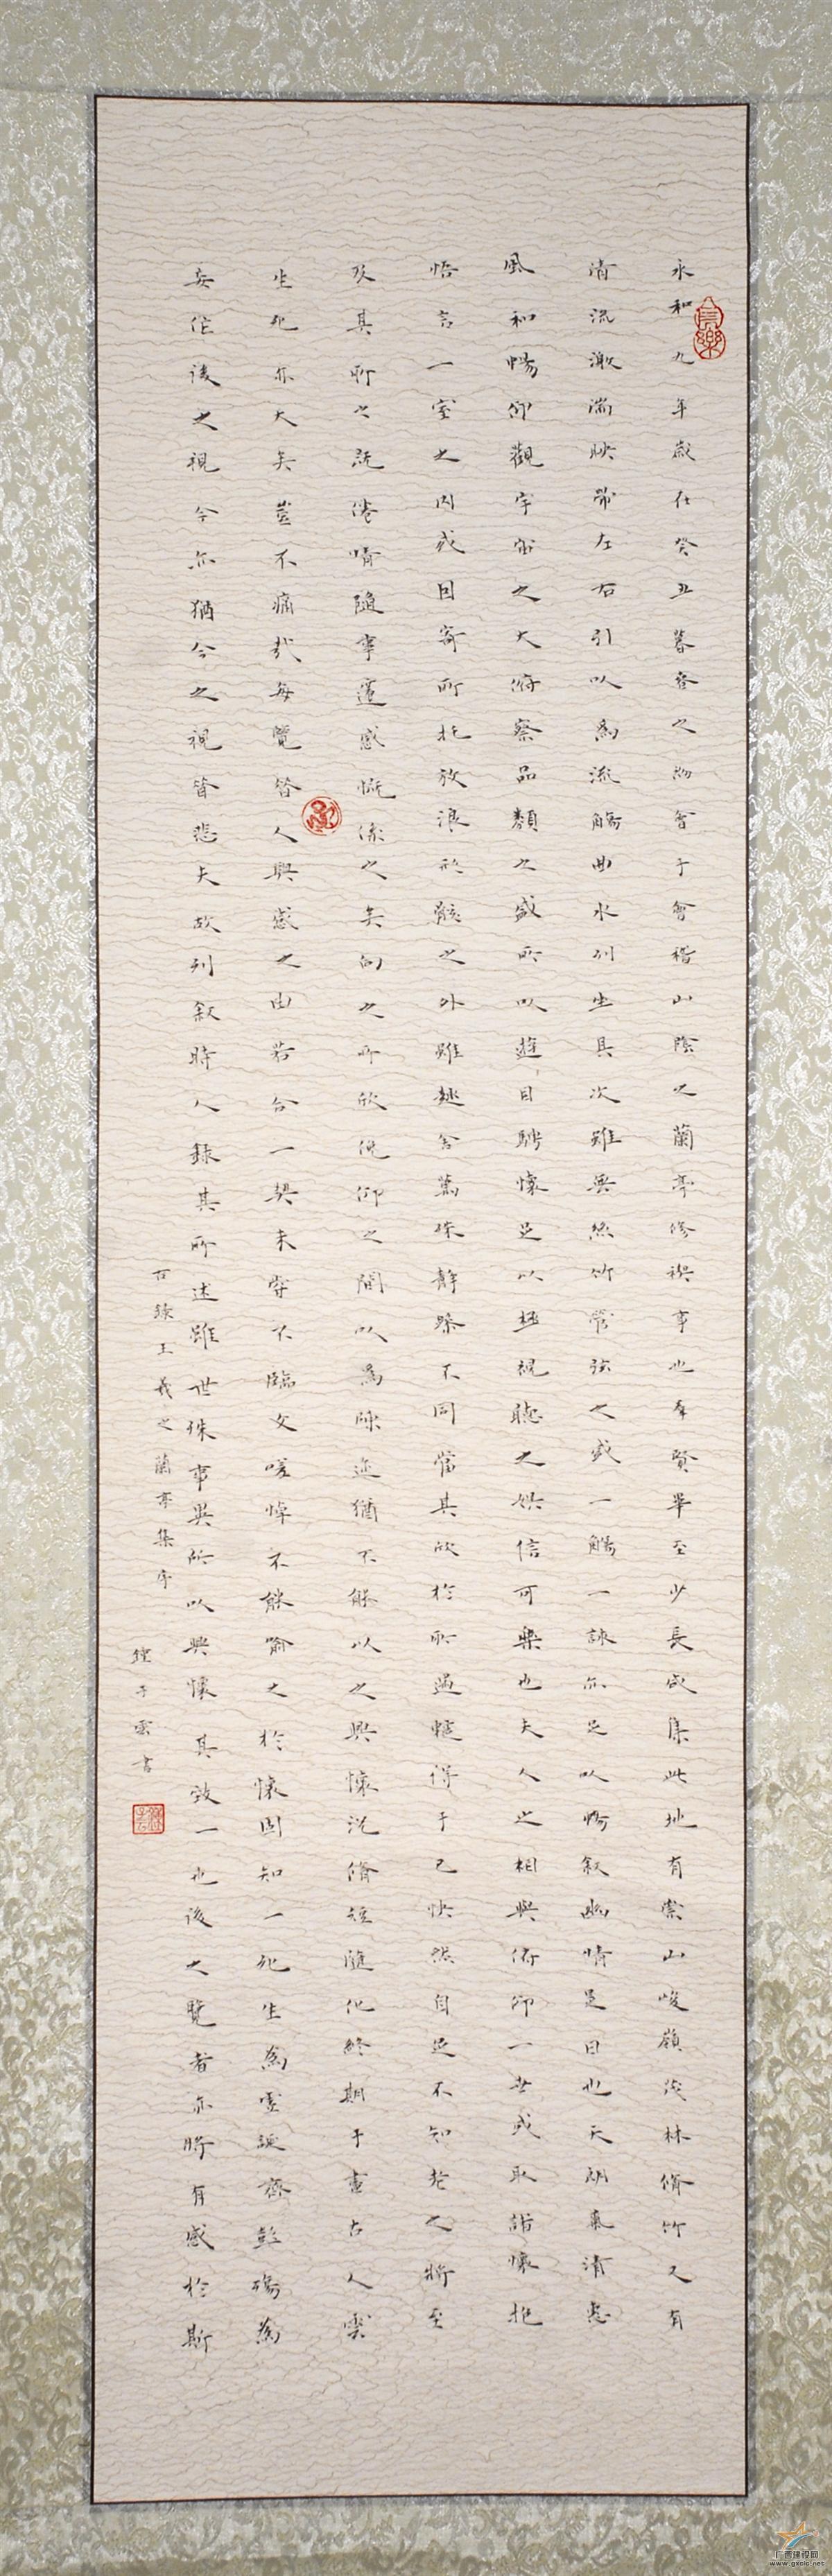 永和九年歲在癸丑暮春之初會于會稽山陰之蘭亭修禊事也羣賢畢至少長咸集此地有崇山峻嶺茂林脩竹又有
清流激湍映帶左右引以為流觴曲水列坐其次雖無絲竹管弦之盛一觴一詠亦足以暢敘幽情是日也天朗氣清惠
風和暢仰觀宇宙之大俯察品類之盛所以遊目騁懷足以極視聽之娛信可樂也夫人之相與俯仰一世或取諸懷抱
悟言一室之內或因寄所托放浪形骸之外雖趣舍萬殊靜躁不同當其欣於所遇蹔得于己快然自足不知老之將至
及其所之既倦情隨事遷感慨係之矣向之所欣俛仰之間以為陳迹猶不能以之興懷況脩短隨化終期于盡古人雲
生死亦大矣豈不痛哉每覽昔人興感之由若合一契未嘗不臨文嗟悼不能喻之於懷固知一死生為虛誕齊彭殤為
妄作後之視今亦猶今之視昔悲夫故列敘時人錄其所述雖世殊事異所以興懷其致一也後之覽者亦將有感於斯
右錄王羲之蘭亭集序
鍾子雲書
广西建设网
www.gxcic.net